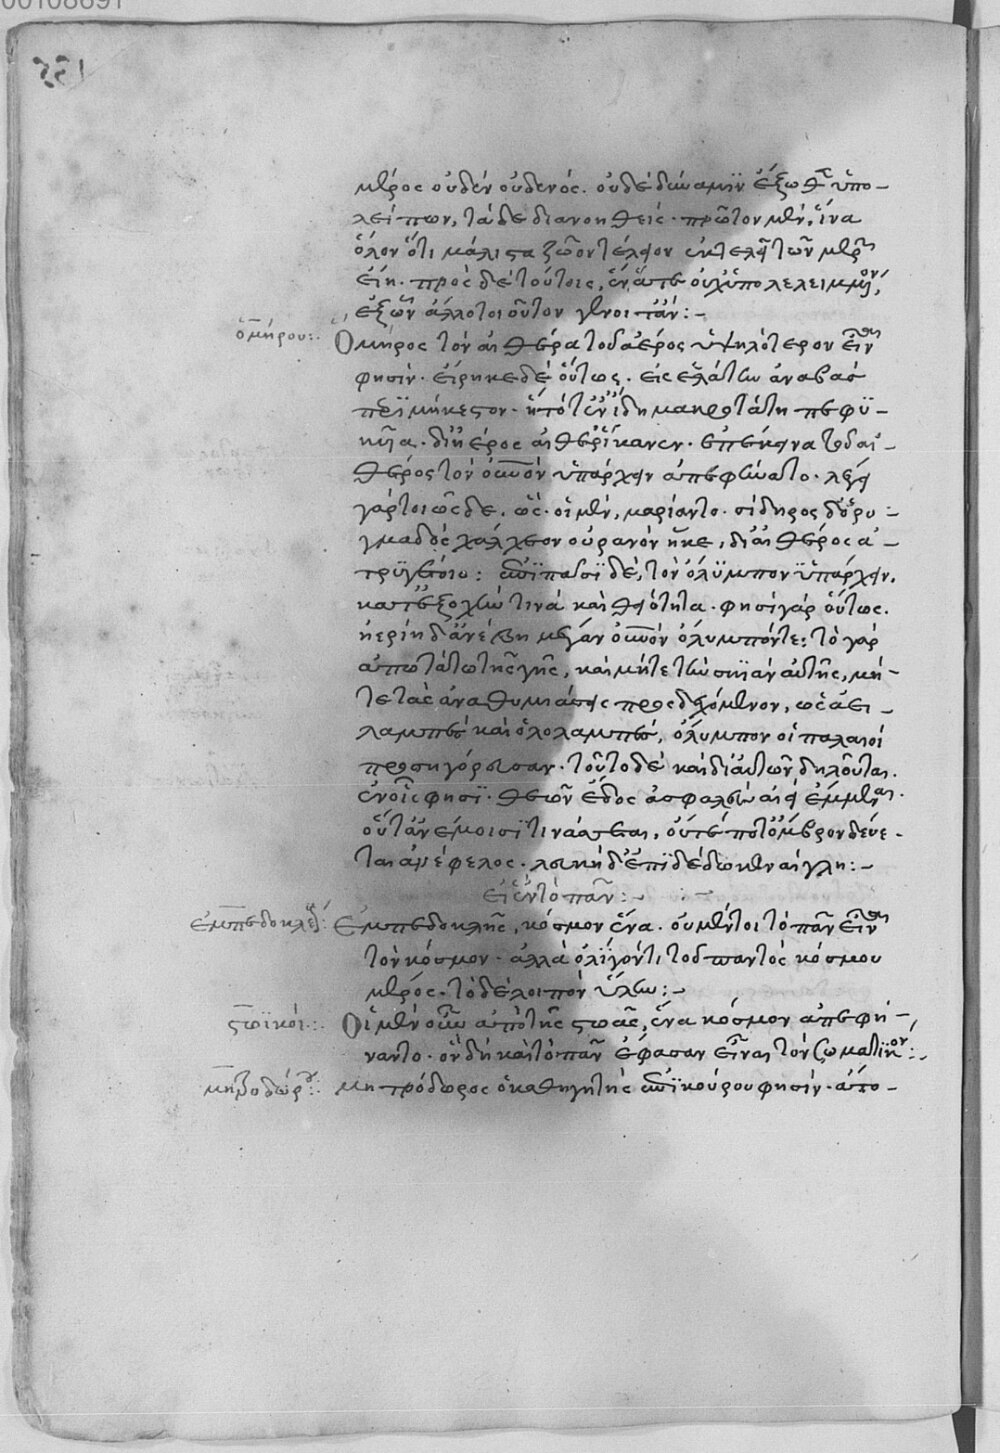 00108691
μέρος οὐδὲν οὐδενὸς οὐδὲ δύναμιν ἔξωθεν ὑπο-
λείπων, τάδε διανοηθείς· πρῶτον μὲν, ἵνα
ὅλον ὅτι μάλιστα ζῶον τέλειον ἐκ τελείων τῶν μερῶν
εἴη· πρὸς δὲ τούτοις, ἓν ἅτε οὐχ ὑπολελειμμένων,
ἐξ ὧν ἄλλο τοιοῦτον γένοιτ' ἄν:-
ὁμήρου:
Ὅμηρος τὸν αἰθέρα τοῦ ἀέρος ὑψηλότερον εἶναι
φησίν· εἴρηκε δὲ οὕτως· εἰς ἐλάτην ἀναβὰς
περιμήκετον· ἣ τότ' ἐν ἴδη μακροτάτη πεφυ-
κυῖα· δι' ἠέρος αἰθέρ' ἵκανεν· ἐπέκεινα τοῦ αἰ-
θέρος τὸν οὐρανὸν ὑπάρχειν ἀπεφήνατο· λέγει
γάρ τοι ὧδε· ὣς οἱ μὲν μαρίαντο· σιδήρος δ' ὀρυ-
γμαδὸς χάλκεον οὐρανὸν ἧκε, δι' αἰθέρος ἀ-
τρυγέτοιο: ἐπὶ πᾶσι δὲ, τὸν ὄλυμπον ὑπάρχειν.
κατ' ἐξοχήν τινα καὶ θειότητα· φησὶ γὰρ οὕτως.
ἠερίη δ' ἀνέβη μέγαν οὐρανὸν ὄλυμπόν τε: τὸ γὰρ
ἀπωτάτω τῆς γῆς, καὶ μήτε τὴν σκιὰν αὐτῆς, μή-
τε τὰς ἀναθυμιάσεις προσδεχόμενον, ὡς ἀει-
λαμπὲς καὶ ὁλολαμπὲς, ὄλυμπον οἱ παλαιοὶ
προσηγόρευσαν· τοῦτο δὲ καὶ δι' αὐτῶν δηλοῦται.
ἐν οἷς φησι· θεῶν ἕδος ἀσφαλὲς αἰεὶ ἔμμεναι.
οὔτ' ἀνέμοισι τινάσσεται, οὔτέ ποτ' ὄμβρον δεύε-
ται ἀνέφελος· λευκὴ δ' ἐπιδέδρομεν αἴγλη:-
εἰ ἓν τὸ πᾶν:-
ἐμπεδοκλέους:
Ἐμπεδοκλῆς, κόσμον ἕνα· οὐ μέντοι τὸ πᾶν εἶναι
τὸν κόσμον· ἀλλὰ ὀλίγον τι τοῦ παντὸς κόσμου
μέρος· τὸ δὲ λοιπὸν ὕλην:-
στωϊκοί:
Οἱ μὲν οὖν ἀπὸ τῆς στοᾶς, ἕνα κόσμον ἀπεφή-
ναντο· ὃν δὴ καὶ τὸ πᾶν ἔφασαν εἶναι τὸν σωματικόν:-
μητροδώρου:
μητρόδωρος ὁ καθηγητὴς ἐπικούρου φησίν· ἄτο-